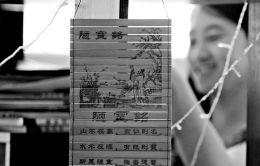 陋室銘
陋室銘
山不在高 有仙則名
水不在深 有龍則靈
斯是陋室 惟吾德馨